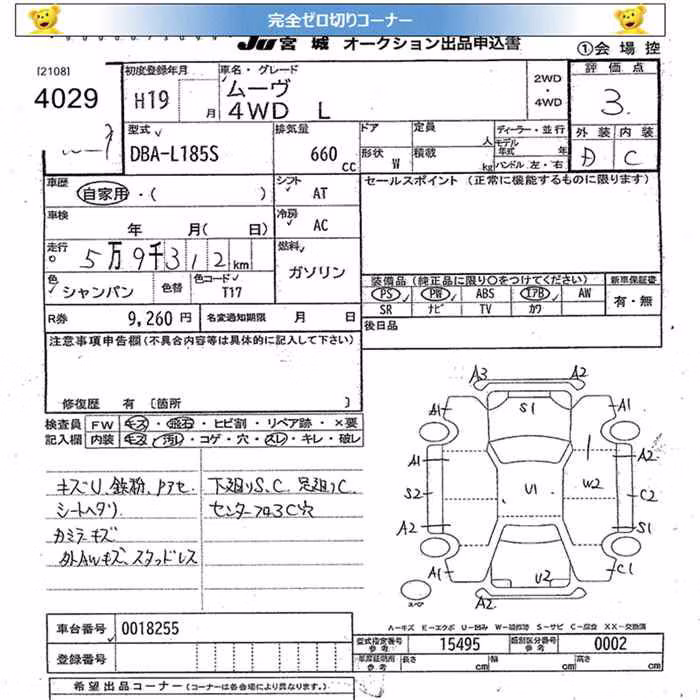 完全ゼロ切りコーナー
JU 宮城 オークション出品申込書
①会場控
[2108]
4029
初度登録年月
H19 月
車名・グレード
ムーヴ
4WD L
2WD
・
4WD
評価点
3
外装 内装
D C
型式
DBA-L185S
排気量
660 CC
ドア
定員 人
ディーラー・並行
モデル年式 年
形状 W
積載 kg
ハンドル 左・右
車歴
自家用・( )
シフト AT
セールスポイント (正常に機能するものに限ります)
車検
年 月( 日)
冷房 AC
走行
5万9千312km
燃料
ガソリン
色 シャンパン
色替
色コード T17
装備品 (純正品に限り○をつけてください)
新車保証書
PS PW ABS エアB AW
有・無
SR ナビ TV カワ
R券 9,260円
名変通知期限 月 日
後日品
注意事項申告欄(不具合内容等は具体的に記入して下さい)
修復歴 有 〔箇所 〕
検査員 FW キズ・飛石・ヒビ割・リペア跡・×要
記入欄 内装 キズ・汚レ・コゲ・穴・スレ・キレ・破レ
キズU、鉄粉、Pアセ、
シートヘタリ
カミラキズ
外AWキズ、スタッドレス
下廻りS、C、足廻りC
センターフロアC穴
A3 A2
A1 S1 A1
A1 A2
S2 U1 W2 C2
A2 S1
A1 U2 C1
A2
スペア
A-キズ E-エクボ U-凹み W-補修跡 S-サビ C-腐食 XX-交換済
車台番号 0018255
型式指定番号 参考 15495
類別区分番号 参考 0002
登録番号
車庫証明用 参考 長さ cm 幅 cm 高さ cm
希望出品コーナー (コーナーは各会場により異なります。)